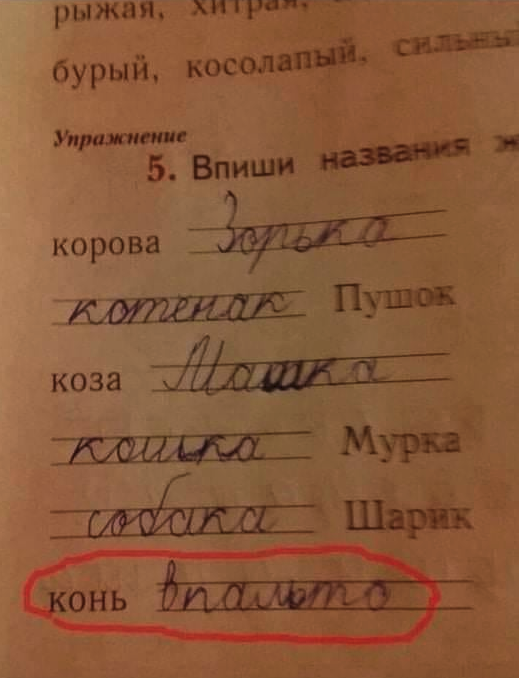 рыжая, хитрая,
бурый, косолапый, сильный
Упражнение
5. Впиши названия ж
корова Зорька
котенак Пушок
коза Машка
кошка Мурка
собака Шарик
конь впальто